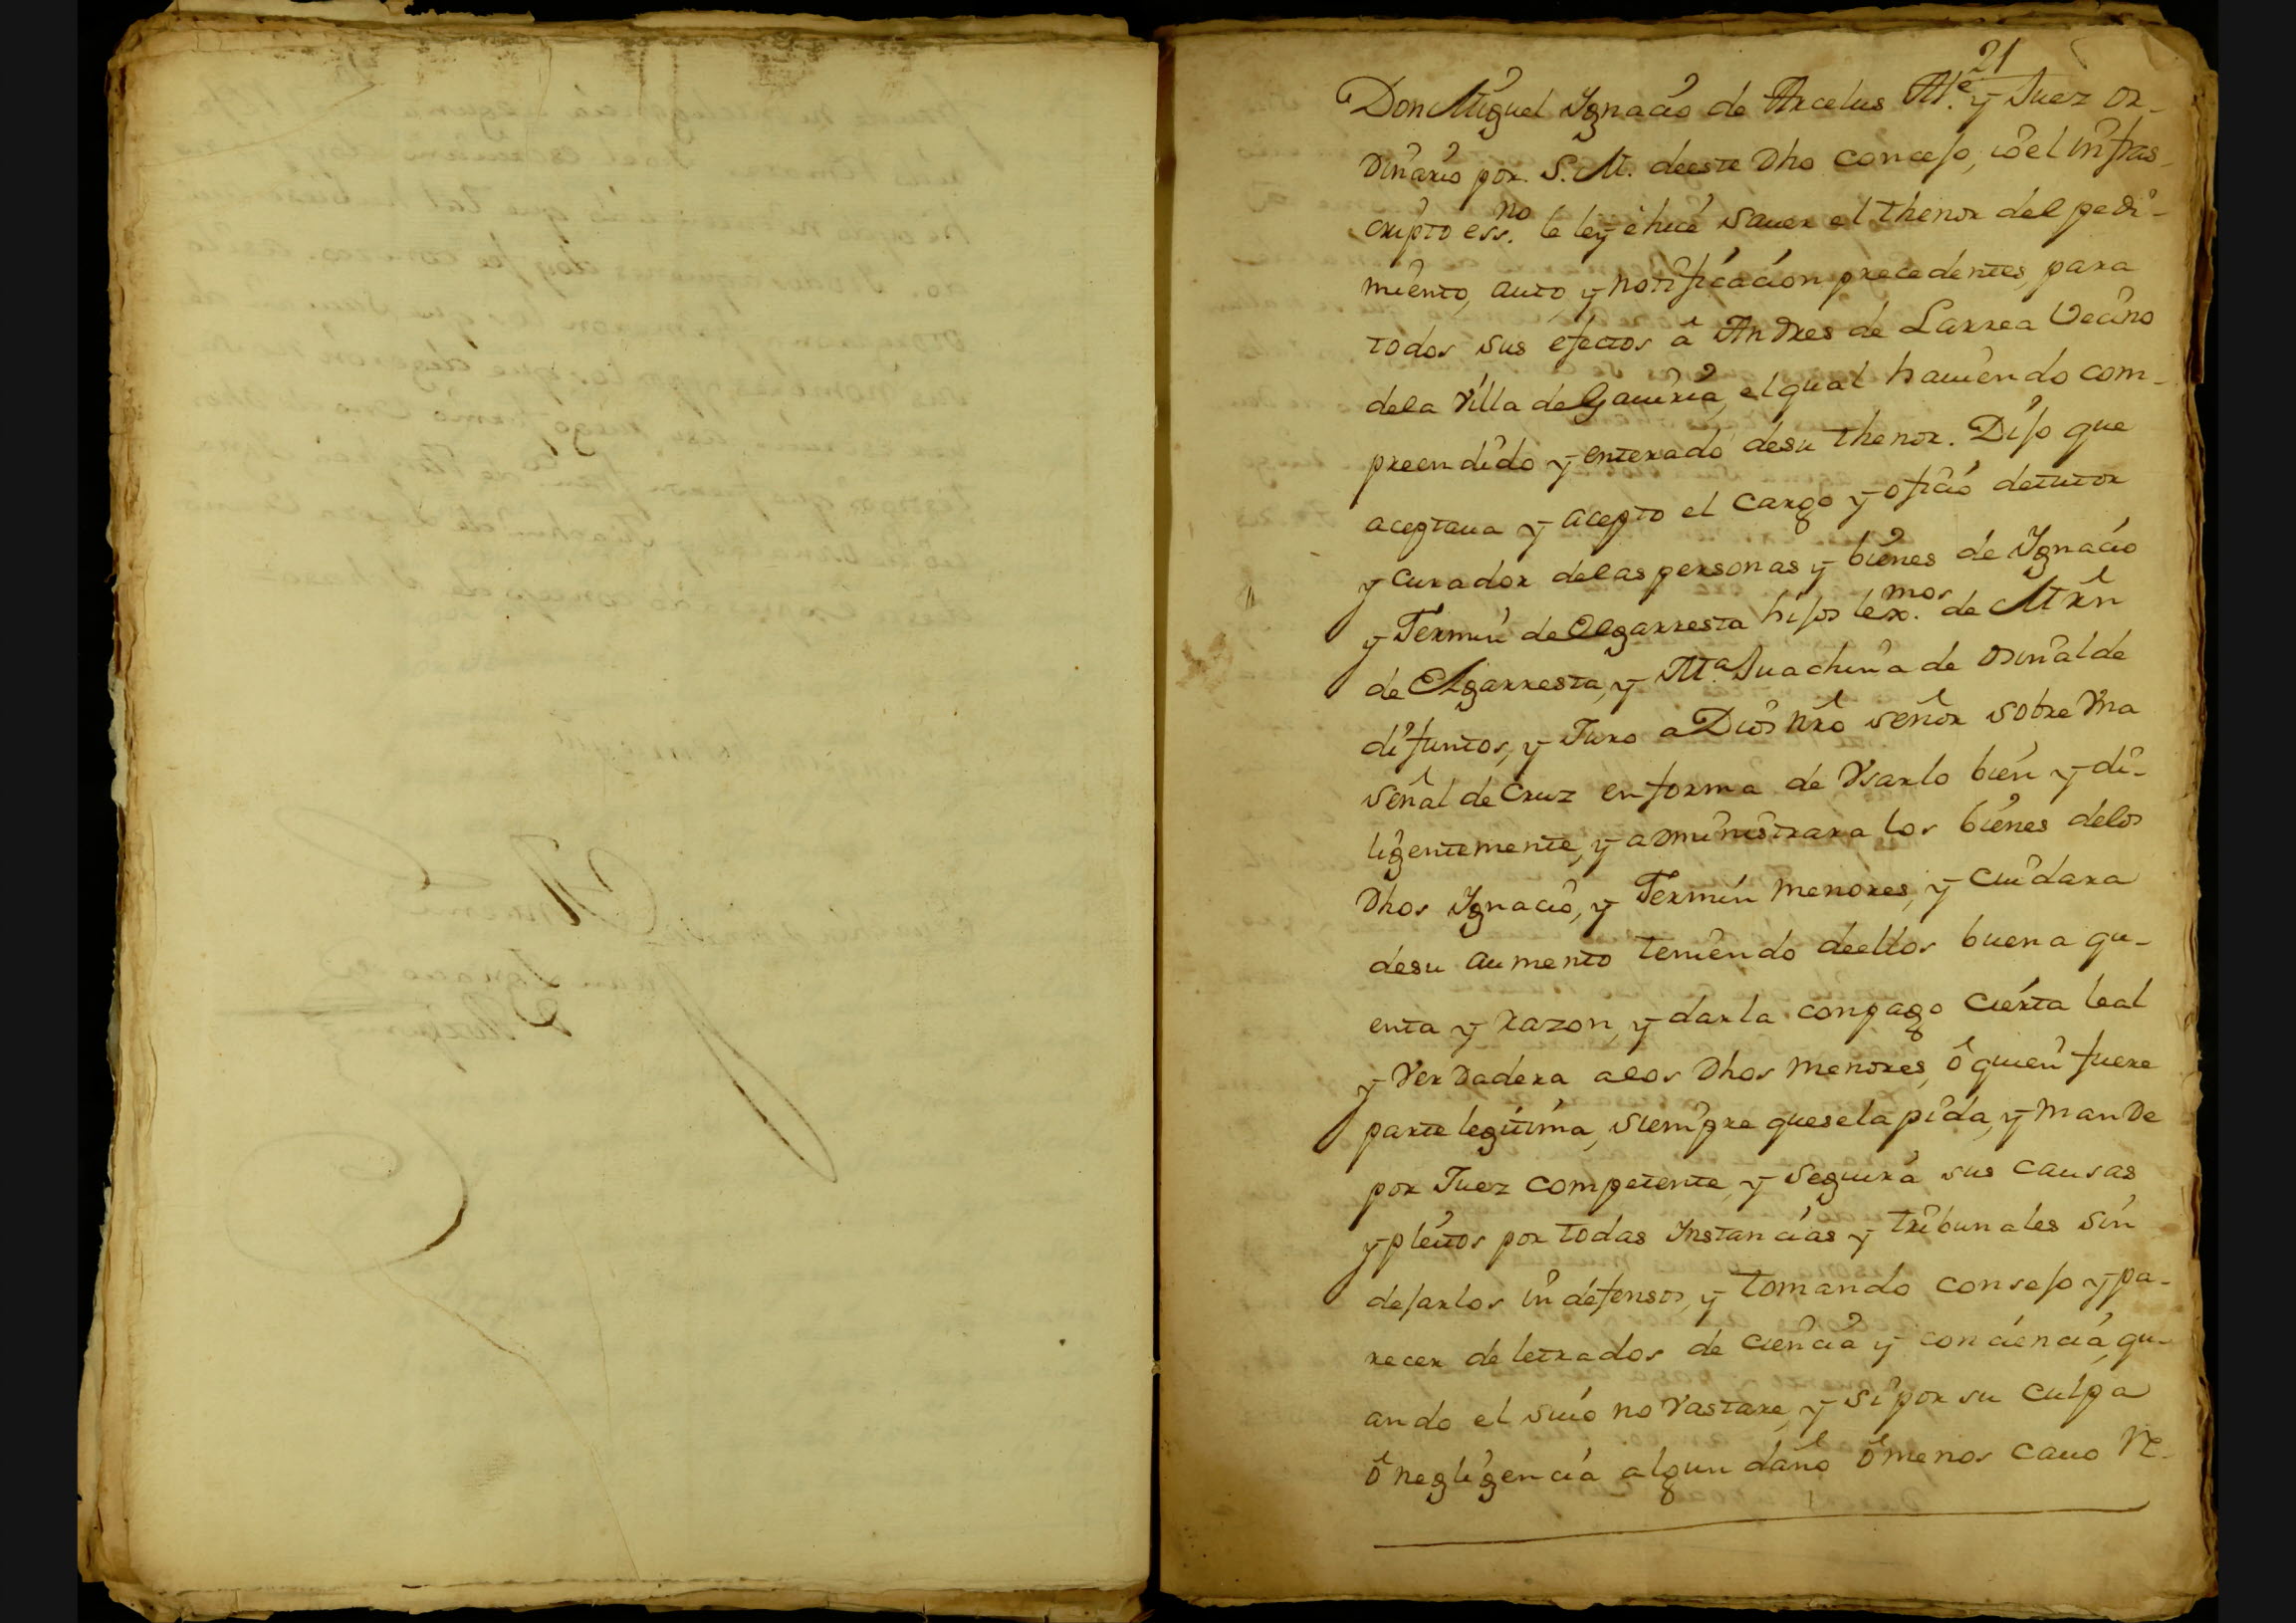 21
Don Miguel Ygnacio de Arcelus Al.e y Juez or-
dinario por S. M. deeste dho concejo, io el infras-
cripto ess.no le ley e hice sauer el thenor del pedi-
miento, auto, y notificacion precedentes, para
todos sus efectos â Andres de Larrea Vecino
dela Villa de Gauiria, el qual hauiendo com-
preendido y enterado desu thenor. Dijo que
aceptaua y acepto el cargo y oficio detutor
y curador delas personas y bienes de Ygnacio
y Fermin de Elgarresta hijos lex.mos de Mrn
de Elgarresta, y M.a Juachina de Orinalde
difuntos, y Juro a Dios nrô señor sobre Vna
señal de Cruz en forma de Vsarlo bien y di-
ligentemente, y administrara los bienes delos
dhos Ygnacio, y Fermin menores, y cuidara
desu aumento teniendo deellos buena qu-
enta y razon, y darla con pago cierta leal
y Verdadera alos dhos menores, ô quien fuere
parte legitima, siempre quesela pida, y mande
por Juez competente, y seguira sus causas
y pleitos por todas Instancias y tribunales sin
dejarlos indefensos, y tomando consejo y pa-
recer de letrados de ciencia y conciencia, qu-
ando el suio no Vastare, y si por su culpa
ô negligencia algun daño ô menos cauo re-